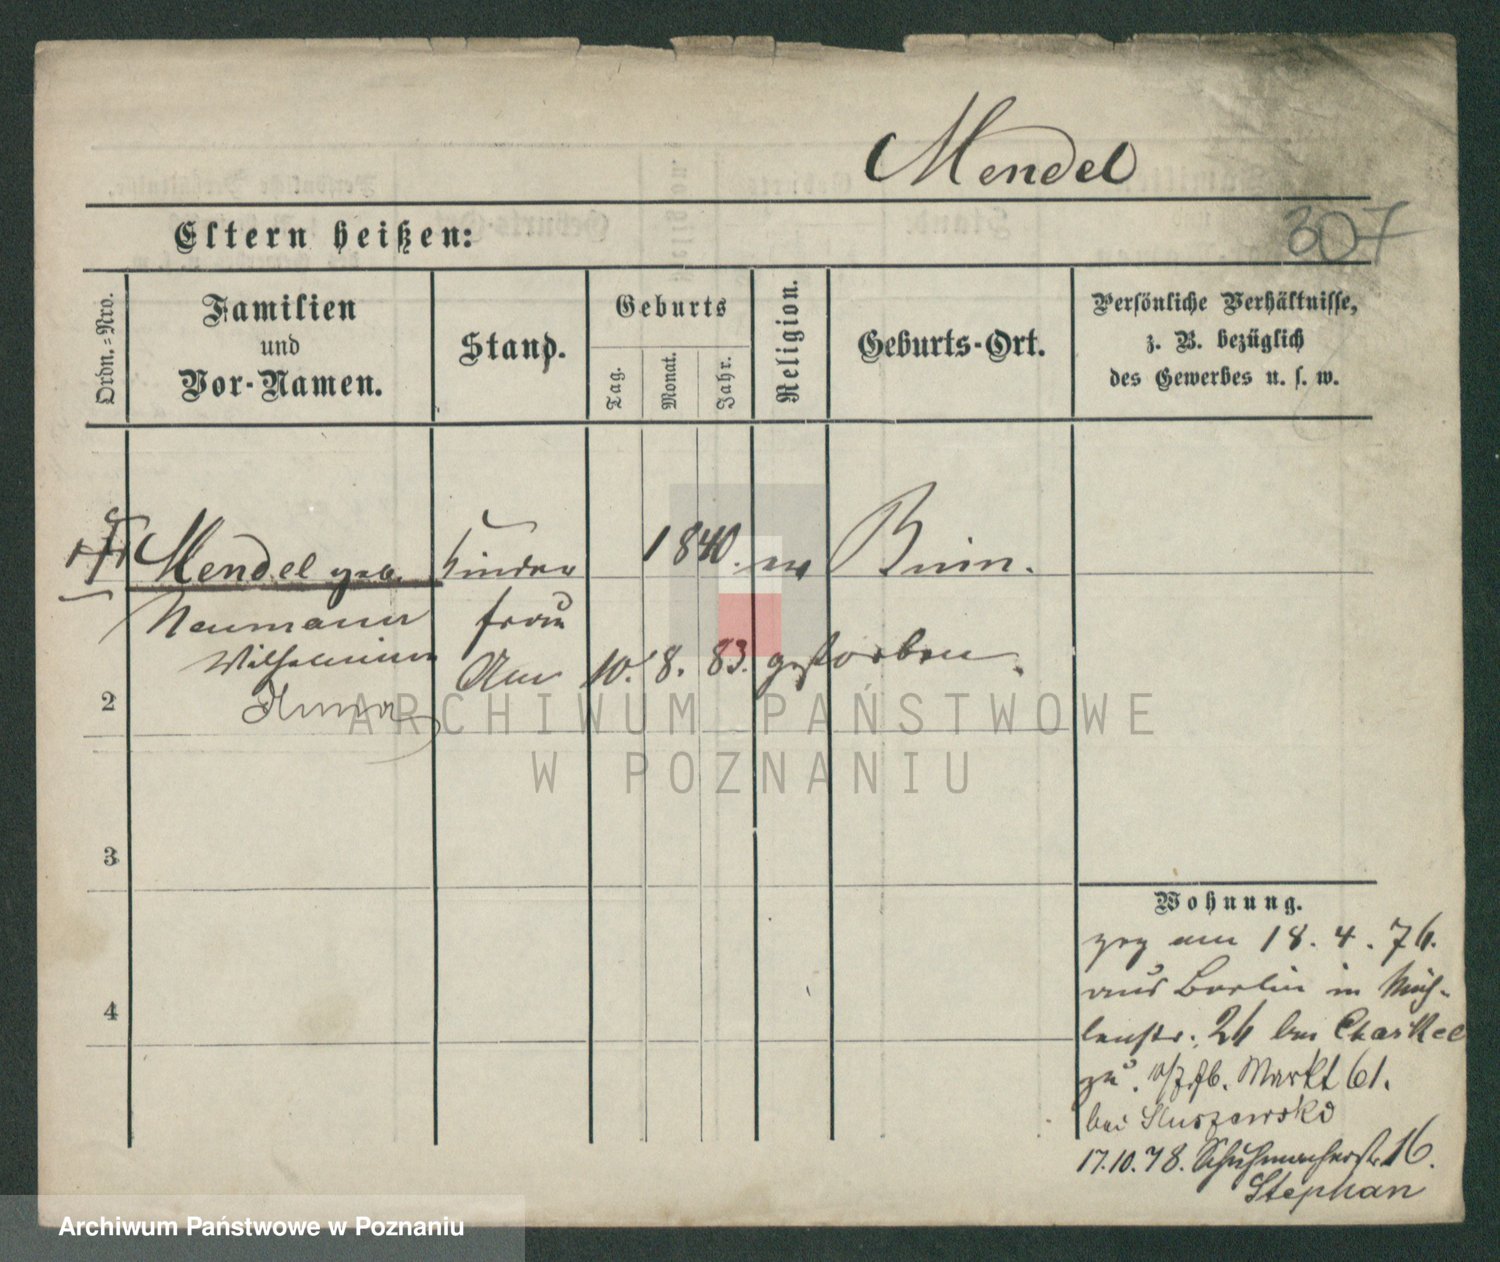 Mendel
307
Eltern heißen:
Ordn.-Nro.
Familien
und
Vor-Namen.
Stand.
Geburts
Tag.
Monat.
Jahr.
Religion.
Geburts-Ort.
Persönliche Verhältnisse,
z. B. bezüglich
des Gewerbes u. s. w.
Mendel geb. Kinder 1840. ev Bnin.
Neumann frau
Wilhelmine Am 10. 8. 83. gestorben.
2 Anna
3
4
Wohnung.
zog am 18. 4. 76.
aus Berlin in Müh-
lenstr. 26 bei Charkel
zu. Markt 61.
bei Sluszewski
17.10.78. Schuhmacherstr 16.
Stephan
ARCHIWUM PAŃSTWOWE
W POZNANIU
Archiwum Państwowe w Poznaniu